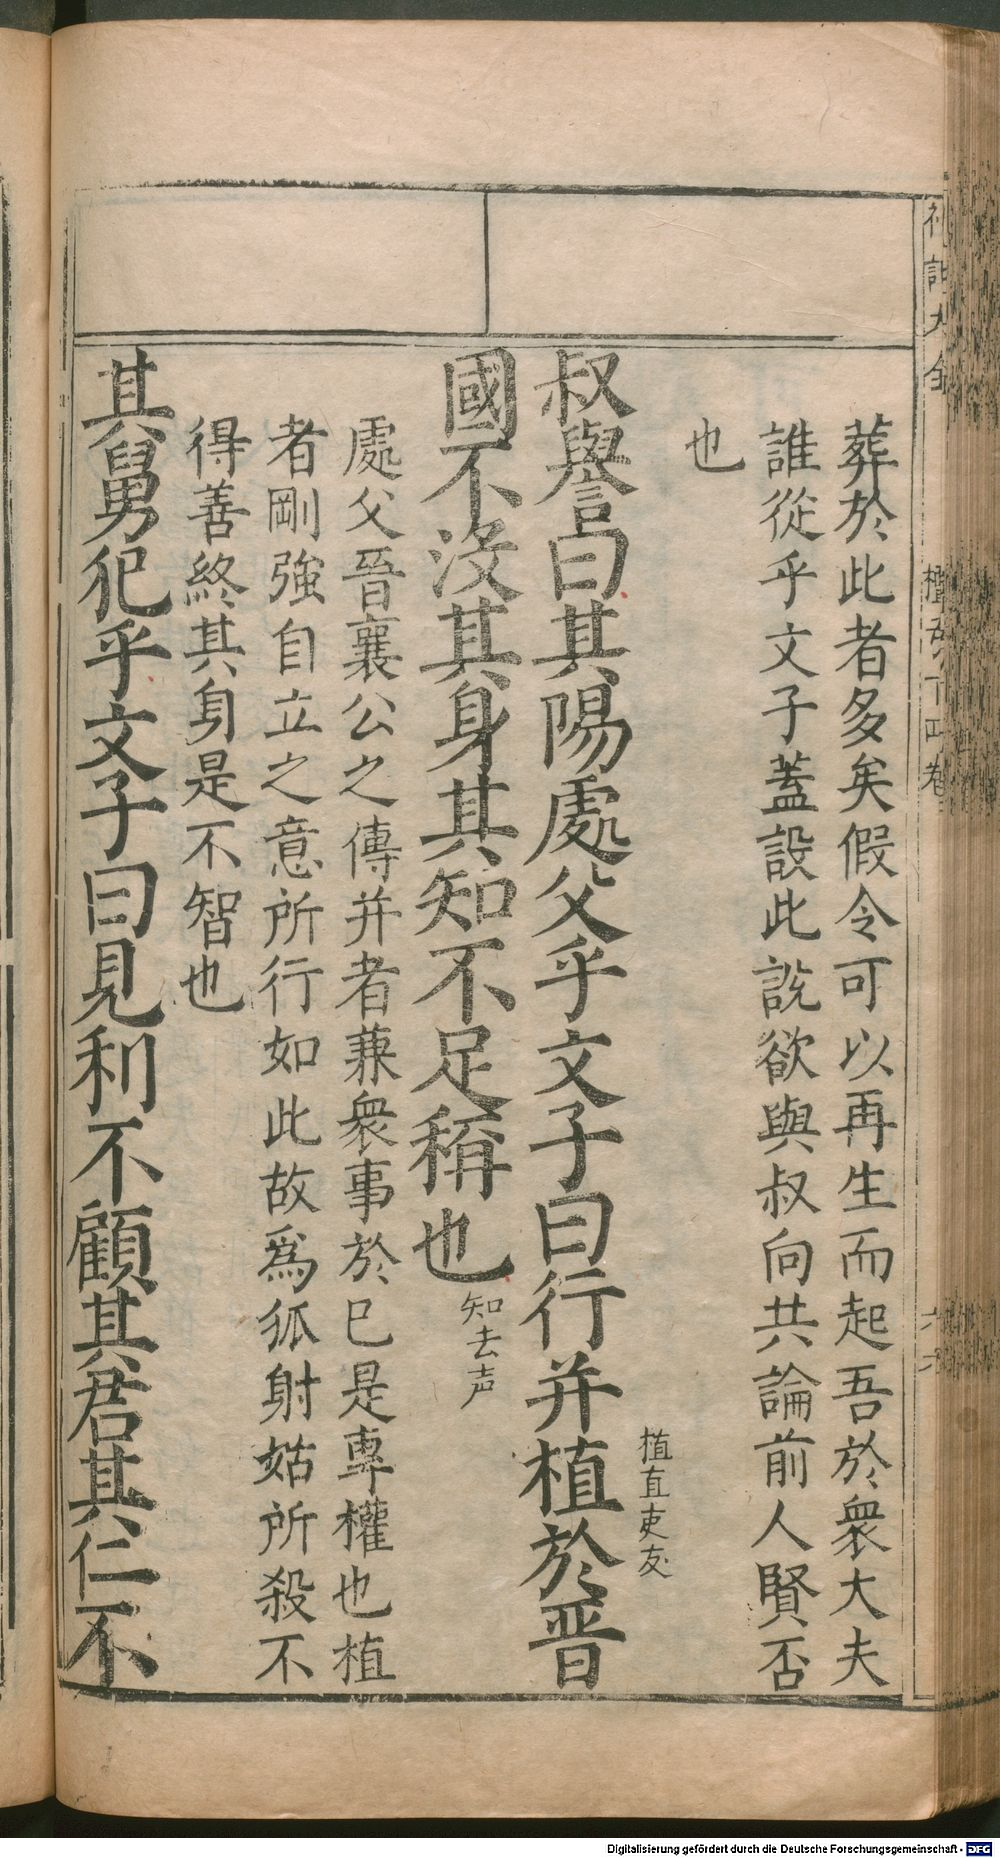 葬於此者多矣假令可以再生而起吾於衆大夫
誰從乎文子蓋設此說欲與叔向共論前人賢否
也
叔譽曰其陽處父乎文子曰行并植於晉
植直吏友
國不沒其身其知不足稱也
知去声
處父晉襄公之傳并者蒹衆事於已是專權也植
者剛強自立之意所行如此故爲狐射姑所殺不
得善終其身是不智也
其舅犯乎文子曰見利不顧其君其仁不
大全
檀弓下四卷
Digitalisierung gefördert durch die Deutsche Forschungsgemeinschaft - DFG